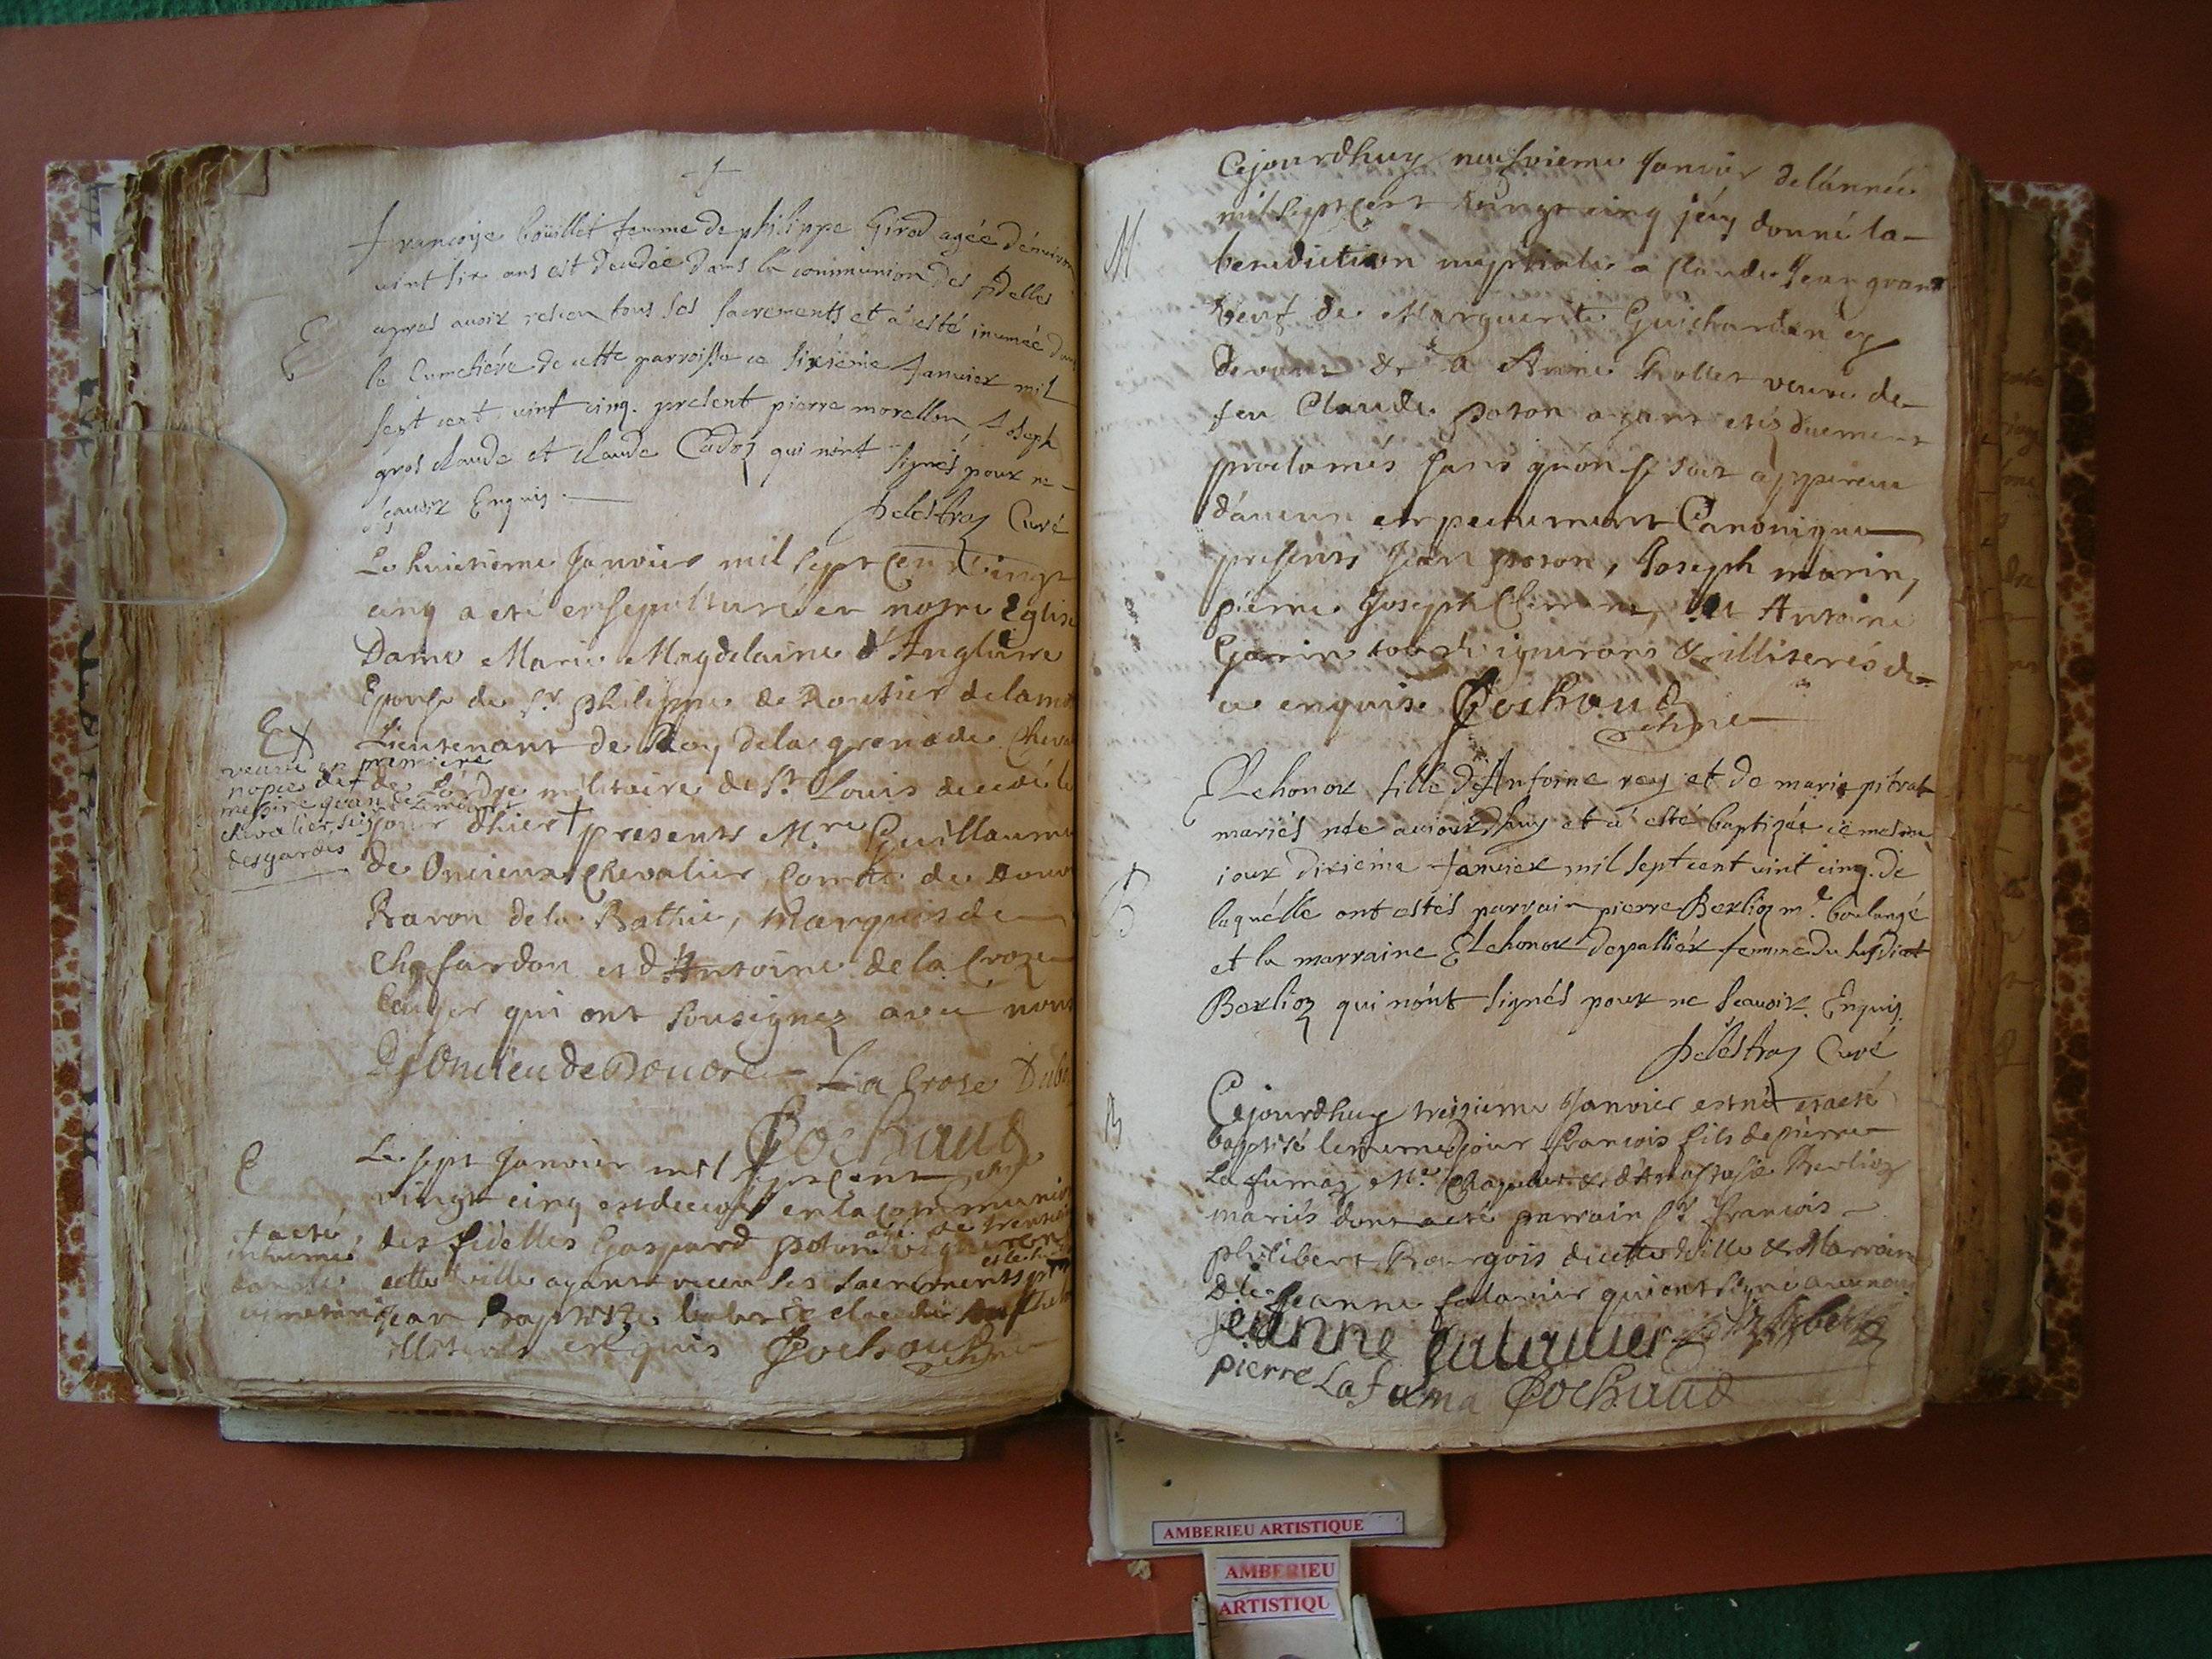 françoise boüillet femme de philippe Girod agée d'environ
vint six ans est decedée dans la communion des fidelles
apres avoir receu tous ses sacrements et a esté inumée dans
E
le cumetiere de cette parroisse ce sixieme Janvier mil
sept cent vint cinq. present pierre morellon, Joseph
gros claude et claude Cadoz qui n'ont signés pour ne
sçavoir Enquis.
Delestraz Curé
Le huictieme Janvier mil sept cent vingt
cinq a eté ensepulturée en nostre Eglise
Dame Marie Magdelaine d'Anglure
Epouse de Sr philippe de Rontier delamo
Ex
Lieutenant de Roy dela grenade Cheva
de L'ordre militaire de St Louis decedée le
veuve en premiere
nopce de
messire jean
chevalier, seig
des gardes
jour dhier + presents Mre Guillaume
de Oncieux chevalier, comte de Douvre
Baron dela Bathie, Marquis de
Chafardon et d'Antoine de la Croze
qui ont sousignez avec nous
D'Oncieu de Douvre La Croze Dub
Cochaud
E
Le sept Janvier mil sept cent
vingt cinq est decedé en la communion
des fidelles Gaspard poton agé de trente
+ a eté
inhumé
dans le
cimetiere
cette ville ayant receu les sacrements
Jean Baptiste
illiterés enquis Cochaud
Cejourdhuy neufvieme Janvier de l'année
mil sept cent vingt cinq j'ay donné la
M
benediction nuptiale a Claude Jean grand
veuf de Marguerite Guichardon
& a Anne Rollet veuve de
feu Claude poton ayant etés duement
proclamés sans qu'on se soit apperceu
d'aucun empechement Canonique
presents Jean poton, Joseph marin,
pierre Joseph et Antoine
Garin tous vignerons & illiterés de
ce enquis Cochaud
Elehonor fille d'Antoine rey et de marie pitrat
mariés née auiourdhuy et a esté baptizée ce mesme
iour dixieme Janvier mil sept cent vint cinq. de
B
laquelle ont estés parrain pierre Berlioz me boulangé
et la marraine Elehonor depallier femme du susdict
Berlioz qui n'ont signés pour ne sçavoir. Enquis.
Delestraz Curé
B
Cejourdhuy treizieme Janvier est né et a eté
baptisé le meme jour francois fils de pierre
La fumaz Me Chapelier & d'Anastasie Berlioz
mariés dont a eté parrain Sr francois
philibert Bourgois de cette ville & Marraine
Dle Jeanne falavier qui ont signé avec nous
jeanne falavier philibert
pierre La fuma Cochaud
AMBERIEU ARTISTIQUE
AMBERIEU
ARTISTIQU